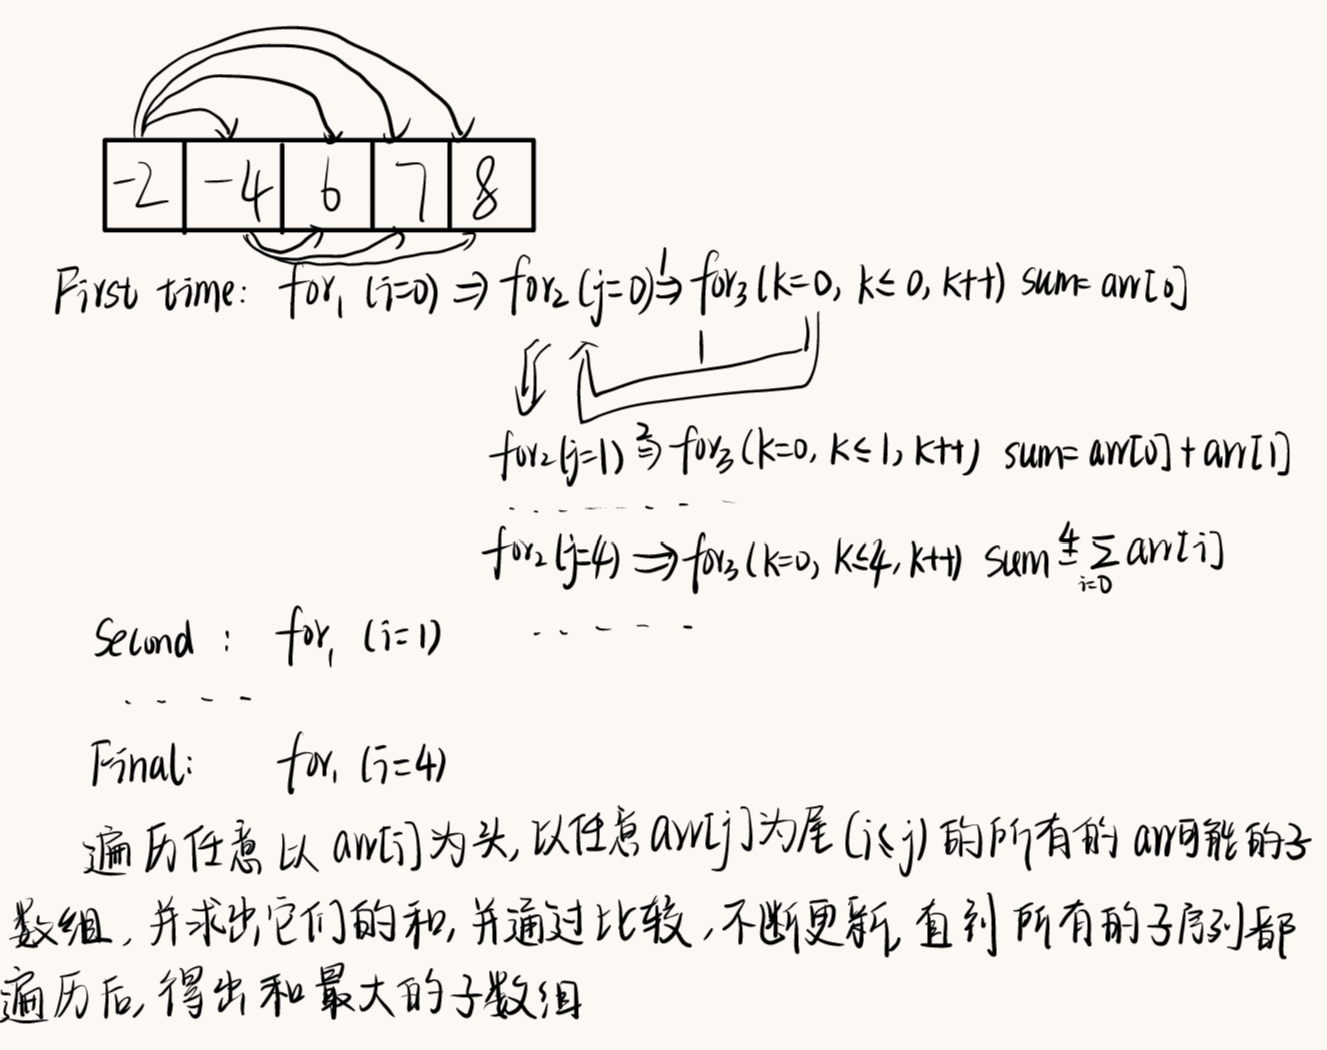 -2 -4 6 7 8
First time: for₁ (i=0) ⇒ for₂ (j=0) ⇒¹ for₃ (k=0, k≤0, k++) sum= arr[0]
1
for₂(j=1) ⇒² for₃ (k=0, k≤1, k++) sum= arr[0]+arr[1]
. . . . . . .
for₂(j=4) ⇒ for₃ (k=0, k≤4, k++) sum = ⁴∑ᵢ₌₀ arr[i]
Second : for₁ (i=1) . . . . .
. . . .
Final: for₁ (i=4)
遍历任意以arr[i]为头,以任意arr[j]为尾(i≤j)的所有的arr可能的子
数组,并求出它们的和,并通过比较,不断更新,直到所有的子序列都
遍历后,得出和最大的子数组